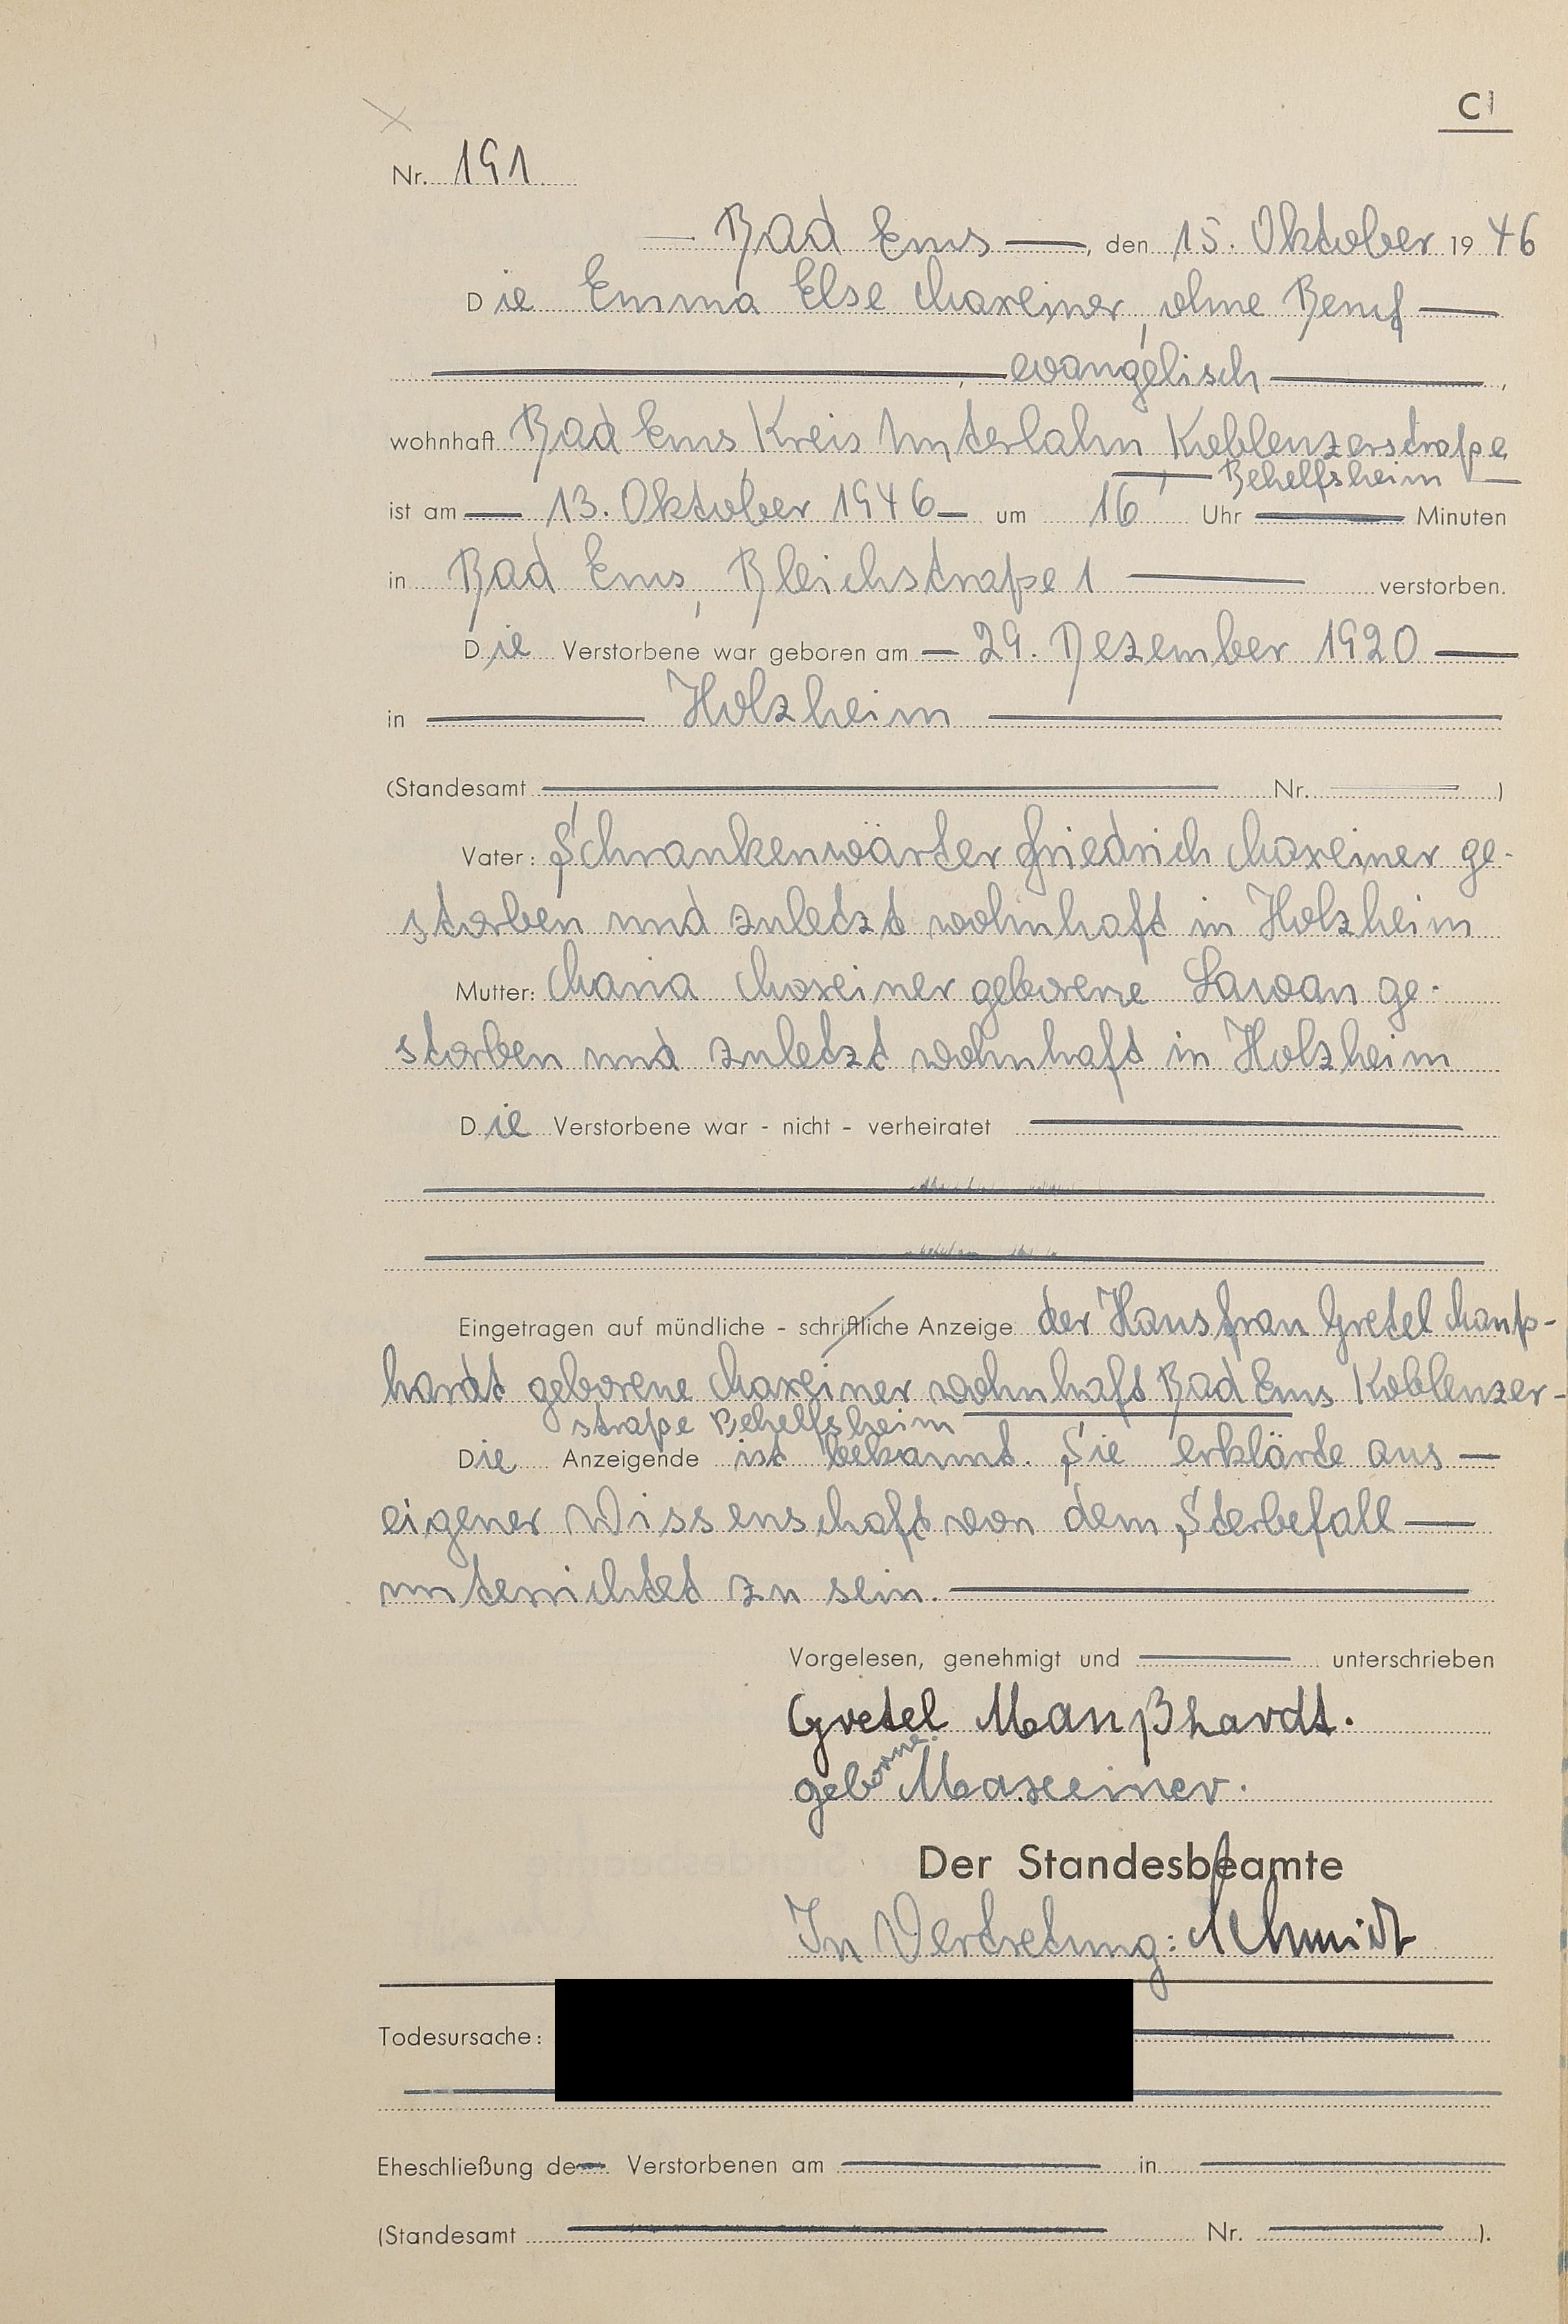 C1
Nr. 191
Bad Ems, den 15. Oktober 1946
Die Emma Else Maxeiner, ohne Beruf
, evangelisch,
wohnhaft Bad Ems, Kreis Unterlahn, Koblenzerstraße
Behelfsheim
ist am 13. Oktober 1946 um 16 Uhr Minuten
in Bad Ems, Bleichstraße 1 verstorben.
Die Verstorbene war geboren am 29. Dezember 1920
in Holzheim
(Standesamt Nr. )
Vater: Schrankenwärter Friedrich Maxeiner ge-
storben und zuletzt wohnhaft in Holzheim
Mutter: Maria Maxeiner geborene ge-
storben und zuletzt wohnhaft in Holzheim
Die Verstorbene war - nicht - verheiratet
Eingetragen auf mündliche - schriftliche Anzeige der Hausfrau Gretel Manß-
hardt geborene Maxeiner wohnhaft Bad Ems Koblenzer-
straße Behelfsheim
Die Anzeigende ist bekannt. Sie erklärte aus
eigener Wissenschaft von dem Sterbefall
unterrichtet zu sein.
Vorgelesen, genehmigt und unterschrieben
Gretel Manßhardt.
geborne Maxeiner.
Der Standesbeamte
In Vertretung: Schmidt
Todesursache:
Eheschließung de Verstorbenen am in
(Standesamt Nr. ).